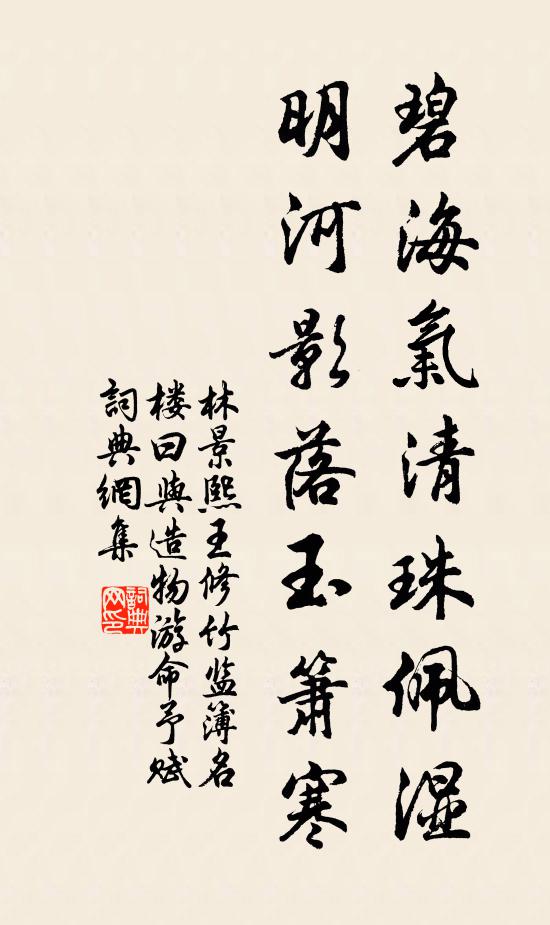 碧海氣清珠佩濕
明河影落玉簫寒
林景熙王修竹监簿名
楼曰與造物游命予赋
詞典網集
詞典网印